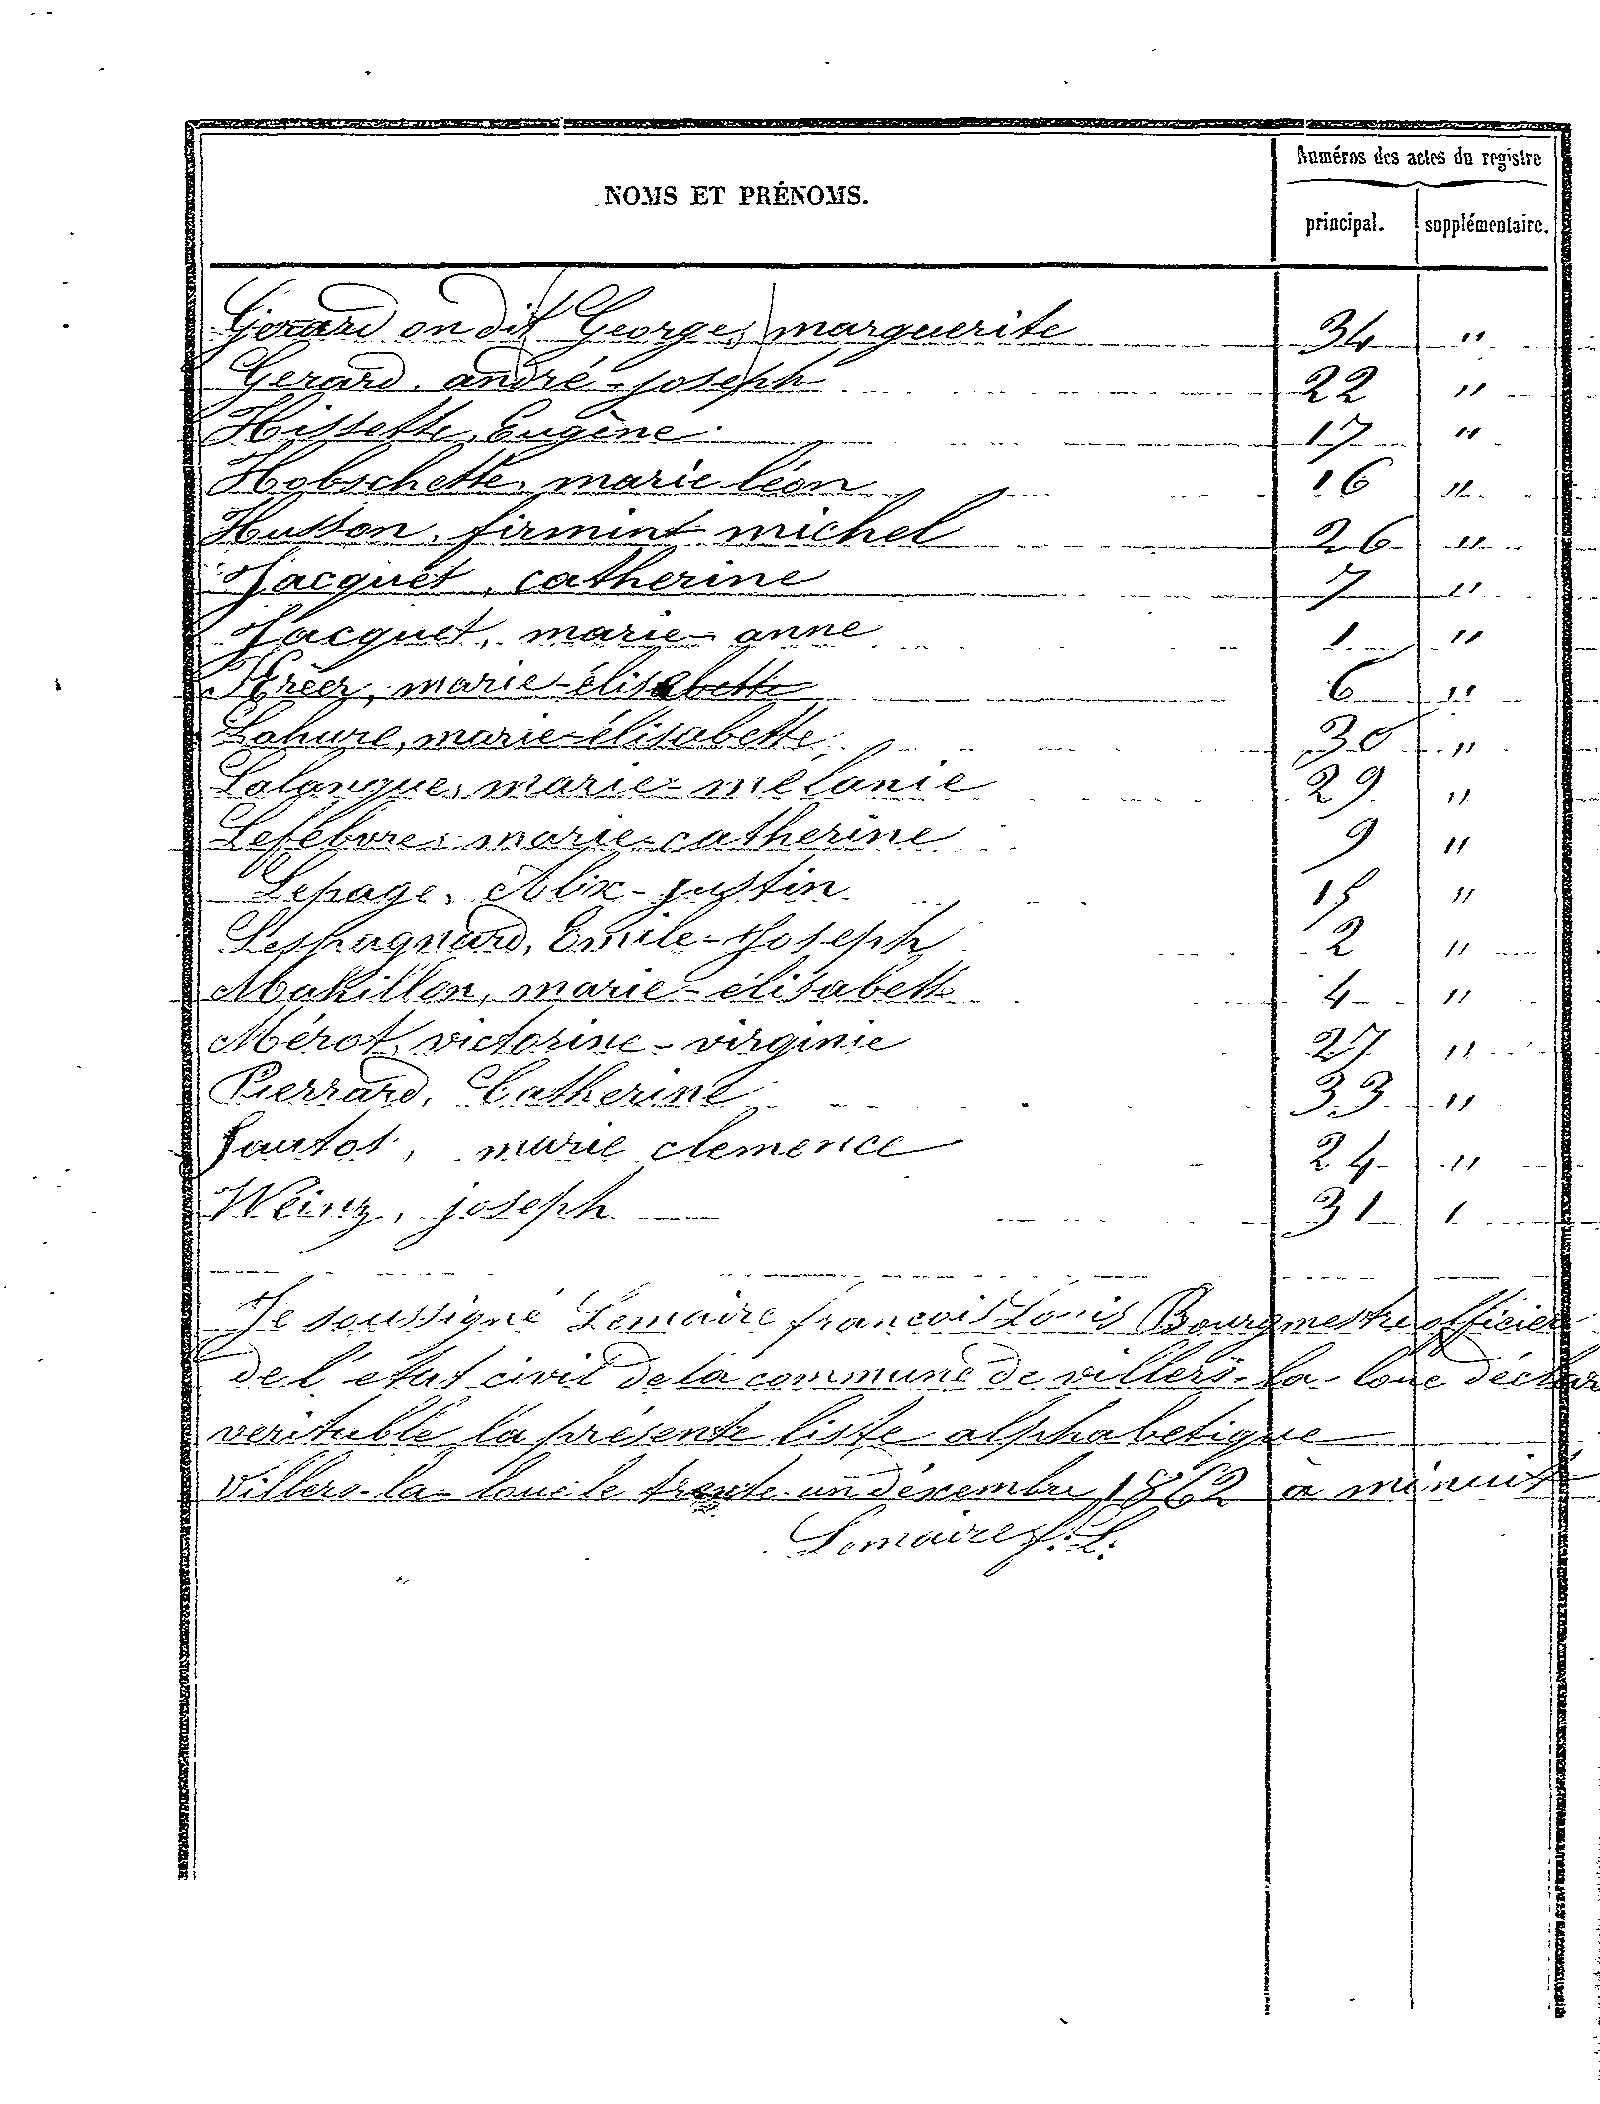 NOMS ET PRÉNOMS.
Numéros des actes du registre
principal. supplémentaire.
Gerard on dit George, marguerite 34 "
Gerard. andré-joseph 22 "
Hissette, Eugène 17 "
Hobschette, marie léon 16 "
Husson, firmint michel 26 "
Jacquet, catherine 7 "
Jacquet, marie-anne 1 "
marie-élisabette 6 "
Lahure, marie-élisabette, 30 "
Lalangue, marie-mélanie 29 "
Lefébvre, marie-catherine 9 "
Lepage, Alix-justin 15 "
Lespagnard, Emile-Joseph 2 "
Makillon, marie-élisabette 4 "
Mérot, victorine-virginie 27 "
Pierrard, Catherine 33 "
marie clemence 24 "
Weinz, joseph 31 "
Je soussigné Lemaire françois Louis Bourgmestre officier
de l'état civil de la commune de villers-la-loue déclar
veritable la présente liste alphabetique
villers-la-loue le trente-un décembre 1862 à minuit
Lemaire f: L: